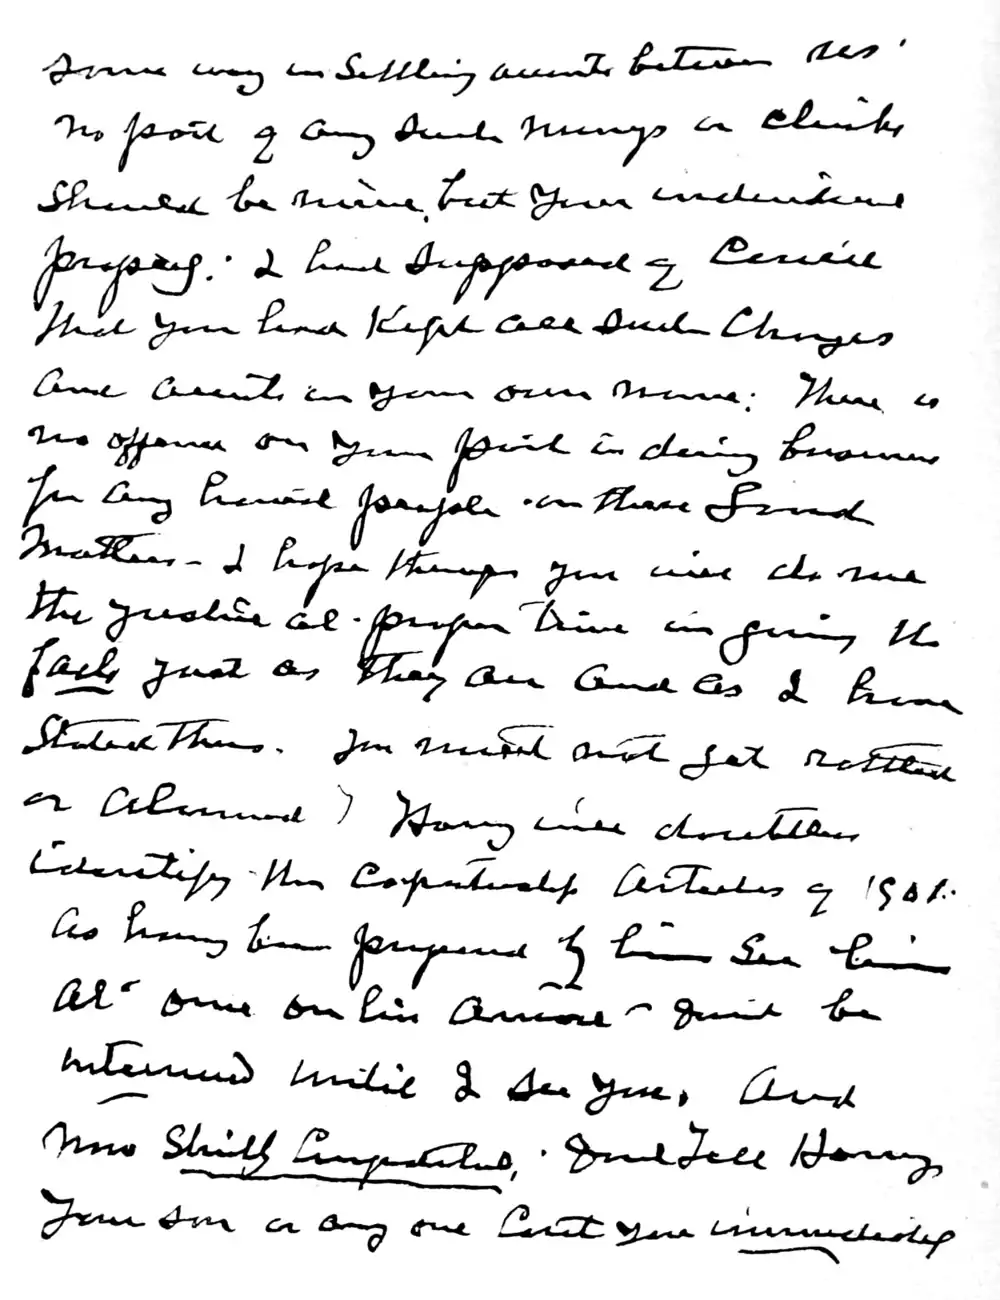 some way in settling accounts between us
no part of any such moneys or checks
should be mine, but your individual
property: I had supposed of course
that you had kept all such charges
and accounts in your own name: There is
no offense on your part in doing business
for any honest people in these Land
Matters - I hope though you will do me
the justice at proper time in giving the
facts just as they are and as I have
stated them. You must not get rattled
or alarmed) Harry will doubtless
identify the copartnership articles of 1901.
as having been prepared by him See him
at once on his arrival - Don't be
interviewed until I see you, And
now Strictly Confidential, Don't Tell Harry
your son or any one but you immediately